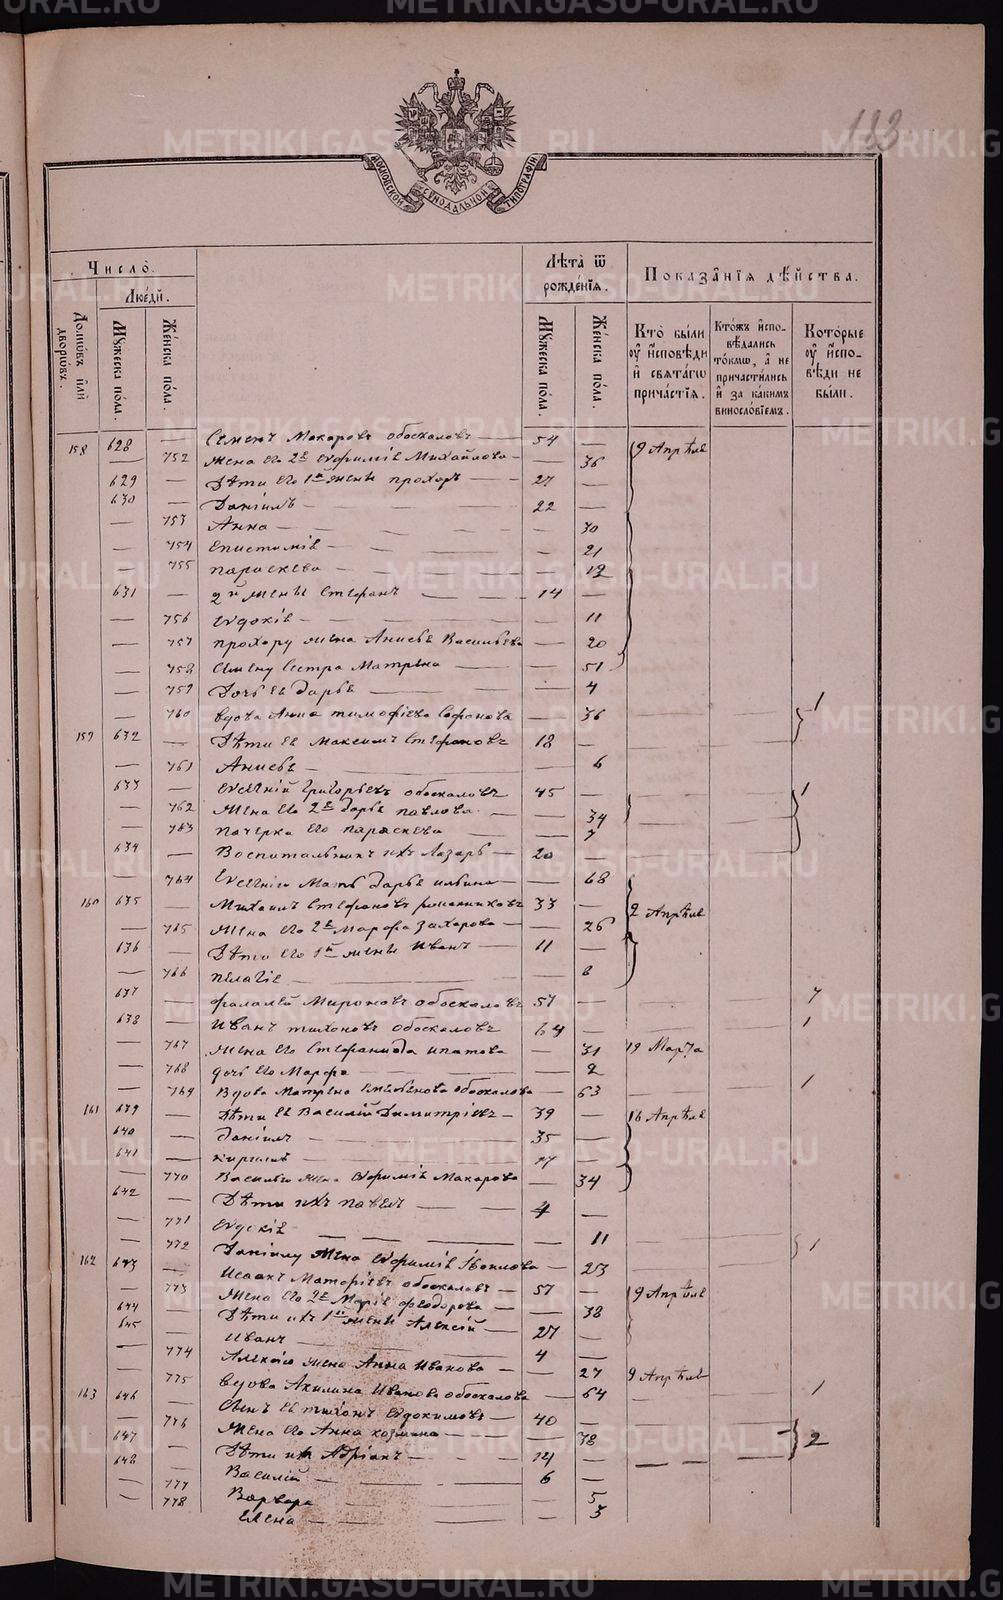 METRIKI.GASO-URAL.RU
МОСКОВСКОЙ СѴНОДАЛЬНОЙ ТИПОГРАФІИ
Число̀.
Домѡ́въ и҆лѝ дворѡ́въ.
Люде́й.
Мꙋ́жеска по́ла.
Же́нска по́ла.
Лѣ́та ѿ рожде́нїѧ.
Мꙋ́жеска по́ла.
Же́нска по́ла.
Показа̑нїѧ дѣ́йства.
Кто̀ бы́ли оу҆ и҆сповѣ́ди и҆ свѧта́гѡ прича́стїѧ.
Кто́жъ и҆спо-вѣ́дались то́кмѡ, а҆ не причасти́лись и҆ за каки́мъ винослѡ́вїемъ.
Кото́рые оу҆ и҆спо-вѣ́ди не бы́ли.
158 628 — Семенъ Макаровъ обоскаловъ — 54 — 9 Апрѣля
— 752 Жена его 2я Евфимія Михайлова — — 36
629 — Дѣти его 1й жены Прохоръ — 27 —
630 — Даніилъ — 22 —
— 753 Анна — — 30
— 754 Епистимія — — 21
— 755 Параскева — — 12
631 — 2й жены Стефанъ — 14 —
— 756 Евдокія — — 11
— 757 Прохору жена Анисья Васильева — 20
— 758 Семену сестра Матрена — — 51
— 759 Дочь ея Дарья — — 4
— 760 Вдова Анна Тимофіева Сафонова — 36 1
159 632 — Дѣти ея Максимъ Стефановъ 18 —
— 761 Анисья — — 6
633 — Евсегній Григорьевъ обоскаловъ 45 — 1
— 762 Жена его 2я Дарья Павлова — — 34
— 763 Пачерка его Параскева — — 7
634 — Воспитальникъ ихъ Лазарь — 20 —
— 764 Евсегнію мать Дарья Ильина — — 68
160 635 — Михаилъ Стефановъ 33 — 2 Апрѣля
— 765 Жена его 2я Марфа Захарова — — 26
636 — Дѣти его 1й жены Иванъ — 11 —
— 766 Пелагія — — 8
637 — Мироновъ обоскаловъ 51 —
638 — Иванъ Тихоновъ обоскаловъ 64 — 1
— 767 Жена его Стефанида Ипатова — 31 19 Марта
— 768 Дочь его Марфа — — 2
— 769 Вдова Матрена обоскалова — 63 — 1
161 639 — Дѣти ея Василій Димитріевъ — 39 — 16 Апрѣля
640 — Даніилъ — 35 —
641 — Кириллъ — —
— 770 Василью жена Евфимія Макарова — 34
642 — Дѣти ихъ Павелъ — 4 —
— 771 Евдокія — — 11
— 772 Даніилу жена Евфимія — 23 1
162 643 — Исаакъ обоскаловъ — 57 — 19 Апрѣля
— 773 Жена его 2я Марія Феодорова — — 38
644 — Дѣти ихъ 1й жены Алексій — 27 —
645 — Иванъ — 4 —
— 774 Алексію жена Анна Иванова — — 27 9 Апрѣля
— 775 Вдова Акилина Иванова обоскалова — 64 — 1
163 646 — Сынъ ея Тихонъ Евдокимовъ — 40 —
— 776 Жена его Анна Козмина — — 38 2
647 — Дѣти ихъ Адріанъ — 14 —
648 — Василій — 6 —
— 777 Варвара — — 5
— 778 Елена — — 3